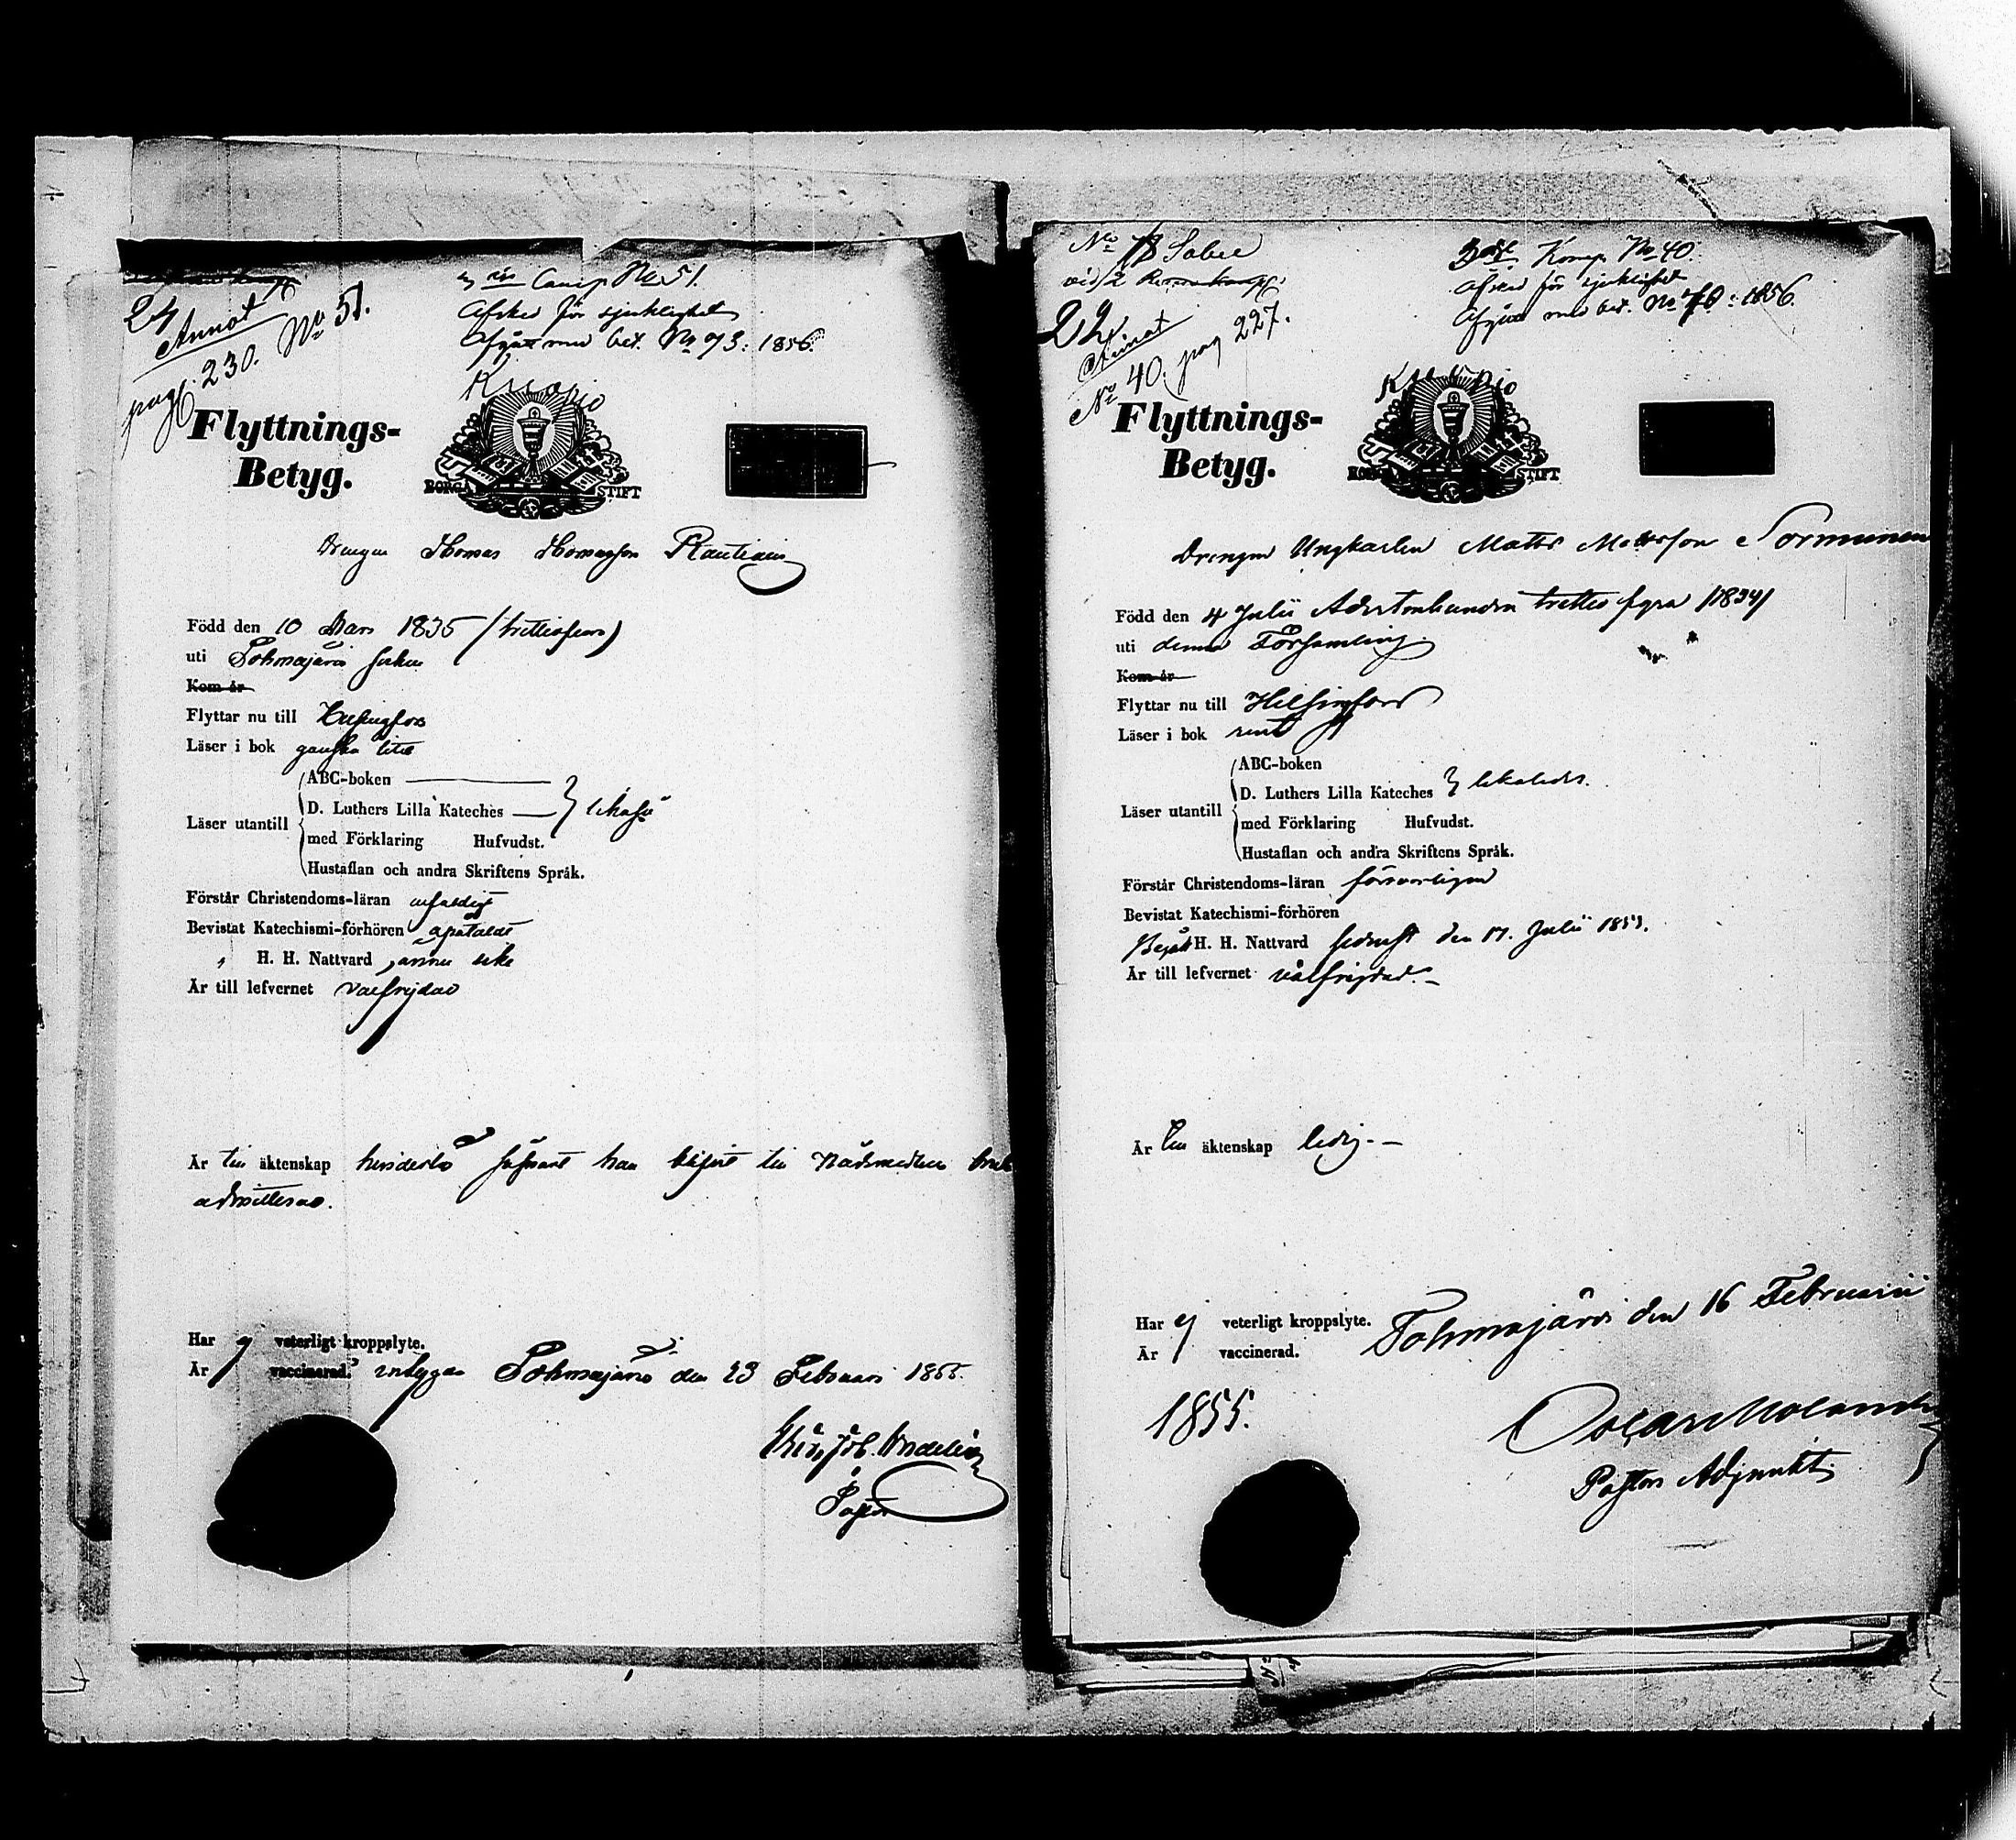 24
Annot
pag. 230. No 51.
3 Comp No 51.
Afsked för sjuklighet
Afgått med bet. No 73: 1856.
Kuopio
Flyttnings-
Betyg.
BORGÅ STIFT
Drengen Thomas Thomasson Rautiain
Född den 10 Mars 1835 (trettiofem)
uti Tohmajärvi socken
Kom år
Flyttar nu till Helsingfors
Läser i bok ganska litet
ABC-boken
D. Luthers Lilla Kateches likaså
Läser utantill
med Förklaring Hufvudst.
Hustaflan och andra Skriftens Språk.
Förstår Christendoms-läran enfaldigt
Bevistat Katechismi-förhören
„ H. H. Nattvard ännu icke
Är till lefvernet välfrejdad
Är till äktenskap hinderlös såsnart han blifvit till Nådemedlens bruk
admitterad.
Har ej veterligt kroppslyte.
Är vaccinerad. intygas Tohmajärvi den 23 Februari 1855.
Pastor
No 18 Sabel
vid 2
22
Annot
No 40. pag 227.
Komp. No 40.
Afsked för sjuklighet
Afgått med bet. No 70: 1856.
Kuopio
Flyttnings-
Betyg.
BORGÅ STIFT
Drengen Ungkarlen Matts Mattsson Sormunen
Född den 4 Julii Adertonhundra trettio fyra /1834/
uti denna Församling.
Kom år
Flyttar nu till Helsingfors
Läser i bok rent
ABC-boken
D. Luthers Lilla Kateches likaledes.
Läser utantill
med Förklaring Hufvudst.
Hustaflan och andra Skriftens Språk.
Förstår Christendoms-läran försvarligen
Bevistat Katechismi-förhören
Begått H. H. Nattvard sednast den 17. Julii 1853.
Är till lefvernet välfrejdad.-
Är till äktenskap ledig.-
Har ej veterligt kroppslyte. Tohmajärvi den 16 Februarii
Är vaccinerad.
1855.
Oscar Molander
Pastors Adjunkt